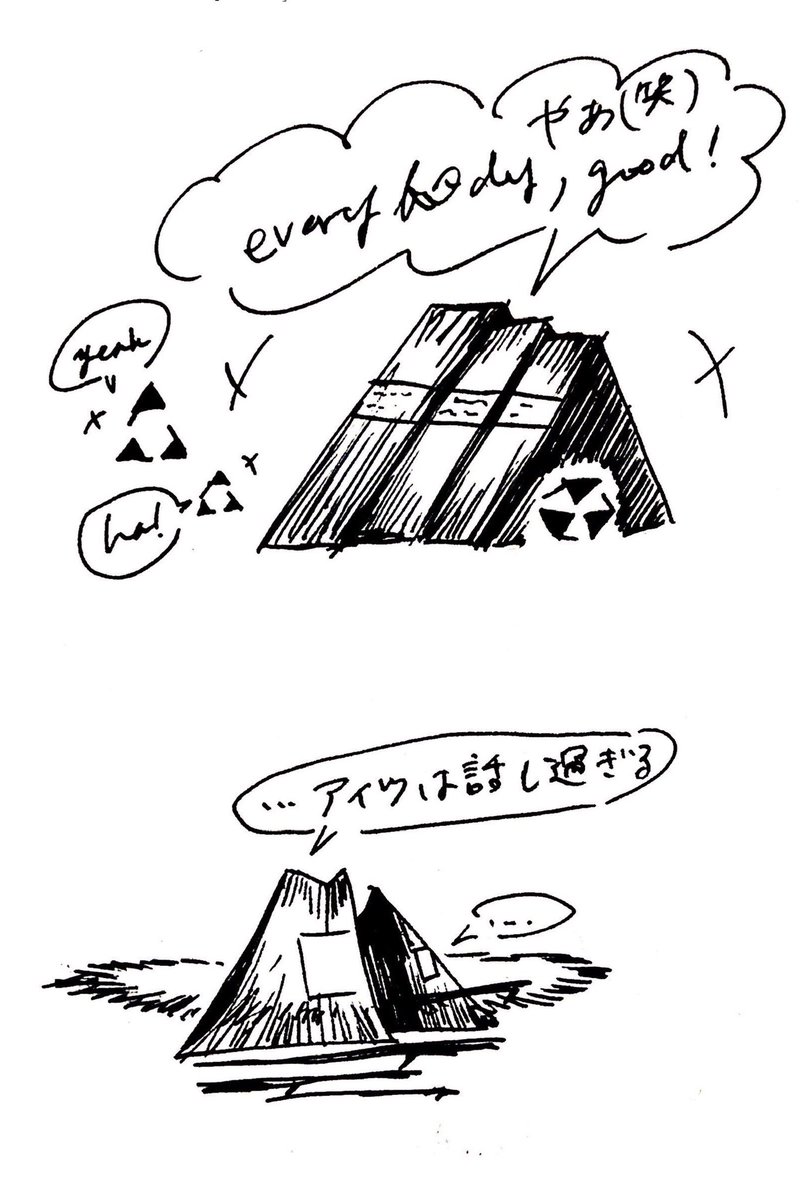 やあ(笑)
everybody, good!
yeah
ha!
…アイツは話し過ぎる
….